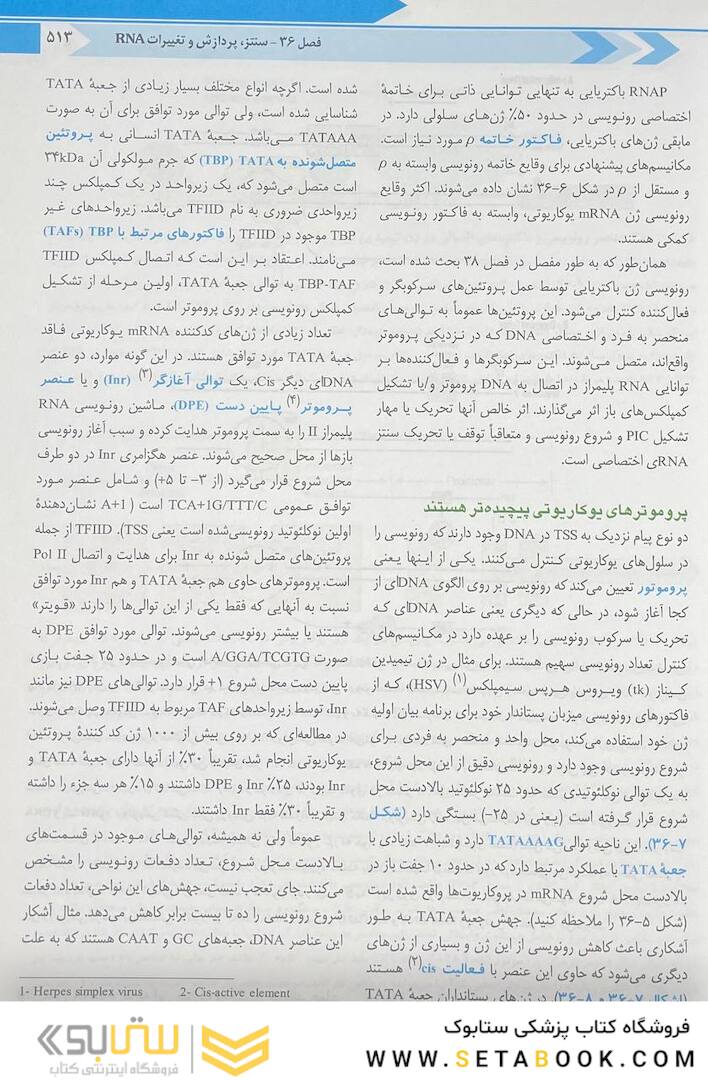 فصل ۳۶ - سنتز، پردازش و تغییرات RNA
۵۱۳
RNAP باکتریایی به تنهایی توانایی ذاتی برای خاتمهٔ
اختصاصی رونویسی در حدود ۵۰٪ ژن‌های سلولی دارد. در
مابقی ژن‌های باکتریایی، فاکتور خاتمه ρ مورد نیاز است.
مکانیسم‌های پیشنهادی برای وقایع خاتمه رونویسی وابسته به ρ
و مستقل از ρ در شکل ۶-۳۶ نشان داده می‌شوند. اکثر وقایع
رونویسی ژن mRNA یوکاریوتی، وابسته به فاکتور رونویسی
کمکی هستند.
همان‌طور که به طور مفصل در فصل ۳۸ بحث شده است،
رونویسی ژن باکتریایی توسط عمل پروتئین‌های سرکوبگر و
فعال‌کننده کنترل می‌شود. این پروتئین‌ها عموماً به توالی‌های
منحصر به فرد و اختصاصی DNA که در نزدیکی پروموتر
واقع‌اند، متصل می‌شوند. این سرکوبگرها و فعال‌کننده‌ها بر
توانایی RNA پلیمراز در اتصال به DNA پروموتر و/یا تشکیل
کمپلکس‌های باز اثر می‌گذارند. اثر خالص آنها تحریک یا مهار
تشکیل PIC و شروع رونویسی و متعاقباً توقف یا تحریک سنتز
RNAی اختصاصی است.
پروموترهای یوکاریوتی پیچیده‌تر هستند
دو نوع پیام نزدیک به TSS در DNA وجود دارند که رونویسی را
در سلول‌های یوکاریوتی کنترل می‌کنند. یکی از اینها یعنی
پروموتور تعیین می‌کند که رونویسی بر روی الگوی DNAای از
کجا آغاز شود، در حالی که دیگری یعنی عناصر DNAای که
تحریک یا سرکوب رونویسی را بر عهده دارد در مکانیسم‌های
کنترل تعداد رونویسی سهیم هستند. برای مثال در ژن تیمیدین
کیناز (tk) ویروس هرپس سیمپلکس(۱) (HSV)، که از
فاکتورهای رونویسی میزبان پستاندار خود برای برنامه بیان اولیه
ژن خود استفاده می‌کند، محل واحد و منحصر به فردی برای
شروع رونویسی وجود دارد و رونویسی دقیق از این محل شروع،
به یک توالی نوکلئوتیدی که حدود ۲۵ نوکلئوتید بالادست محل
شروع قرار گرفته است (یعنی در ۲۵-) بستگی دارد (شکل
۷-۳۶). این ناحیه توالی TATAAAAG دارد و شباهت زیادی با
جعبهٔ TATA با عملکرد مرتبط دارد که در حدود ۱۰ جفت باز در
بالادست محل شروع mRNA در پروکاریوت‌ها واقع شده است
(شکل ۵-۳۶ را ملاحظه کنید). جهش جعبهٔ TATA به طور
آشکاری باعث کاهش رونویسی از این ژن و بسیاری از ژن‌های
دیگری می‌شود که حاوی این عنصر با فعالیت cis(۲) هستند
(اشکال ۷-۳۶ و ۸-۳۶). در ژن‌های پستانداران جعبهٔ TATA
شده است. اگرچه انواع مختلف بسیار زیادی از جعبهٔ TATA
شناسایی شده است، ولی توالی مورد توافق برای آن به صورت
TATAAA می‌باشد. جعبهٔ TATA انسانی به پروتئین
متصل‌شونده به TATA (TBP) که جرم مولکولی آن ۳۴kDa
است متصل می‌شود که، یک زیرواحد در یک کمپلکس چند
زیرواحدی ضروری به نام TFIID می‌باشد. زیرواحدهای غیر
TBP موجود در TFIID را فاکتورهای مرتبط با TBP (TAFs)
می‌نامند. اعتقاد بر این است که اتصال کمپلکس TFIID
TBP-TAF به توالی جعبهٔ TATA، اولین مرحله از تشکیل
کمپلکس رونویسی بر روی پروموتر است.
تعداد زیادی از ژن‌های کدکننده mRNA یوکاریوتی فاقد
جعبهٔ TATA مورد توافق هستند. در این گونه موارد، دو عنصر
DNAای دیگر Cis، یک توالی آغازگر(۳) (Inr) و یا عنصر
پروموتر(۴) پایین دست (DPE)، ماشین رونویسی RNA
پلیمراز II را به سمت پروموتر هدایت کرده و سبب آغاز رونویسی
بازها از محل صحیح می‌شوند. عنصر هگزامری Inr در دو طرف
محل شروع قرار می‌گیرد (از ۳- تا ۵+) و شامل عنصر مورد
توافق عمومی TCA+1G/TTT/C است ( A+1 نشان‌دهندهٔ
اولین نوکلئوتید رونویسی‌شده است یعنی TSS). TFIID از جمله
پروتئین‌های متصل شونده به Inr برای هدایت و اتصال Pol II
است. پروموترهای حاوی هم جعبهٔ TATA و هم Inr مورد توافق
نسبت به آنهایی که فقط یکی از این توالی‌ها را دارند «قویتر»
هستند یا بیشتر رونویسی می‌شوند. توالی مورد توافق DPE به
صورت A/GGA/TCGTG است و در حدود ۲۵ جفت بازی
پایین دست محل شروع ۱+ قرار دارد. توالی‌های DPE نیز مانند
Inr، توسط زیرواحدهای TAF مربوط به TFIID وصل می‌شوند.
در مطالعه‌ای که بر روی بیش از ۱۰۰۰ ژن کد کنندهٔ پروتئین
یوکاریوتی انجام شد، تقریباً ۳۰٪ از آنها دارای جعبهٔ TATA و
Inr بودند، ۲۵٪ Inr و DPE داشتند و ۱۵٪ هر سه جزء را داشته
و تقریباً ۳۰٪ فقط Inr داشتند.
عموماً ولی نه همیشه، توالی‌های موجود در قسمت‌های
بالادست محل شروع، تعداد دفعات رونویسی را مشخص
می‌کنند. جای تعجب نیست، جهش‌های این نواحی، تعداد دفعات
شروع رونویسی را ده تا بیست برابر کاهش می‌دهد. مثال آشکار
این عناصر DNA، جعبه‌های GC و CAAT هستند که به علت
1- Herpes simplex virus 2- Cis-active element
فروشگاه کتاب پزشکی ستابوک
WWW.SETABOOK.COM
ستابوک
فروشگاه اینترنتی کتاب